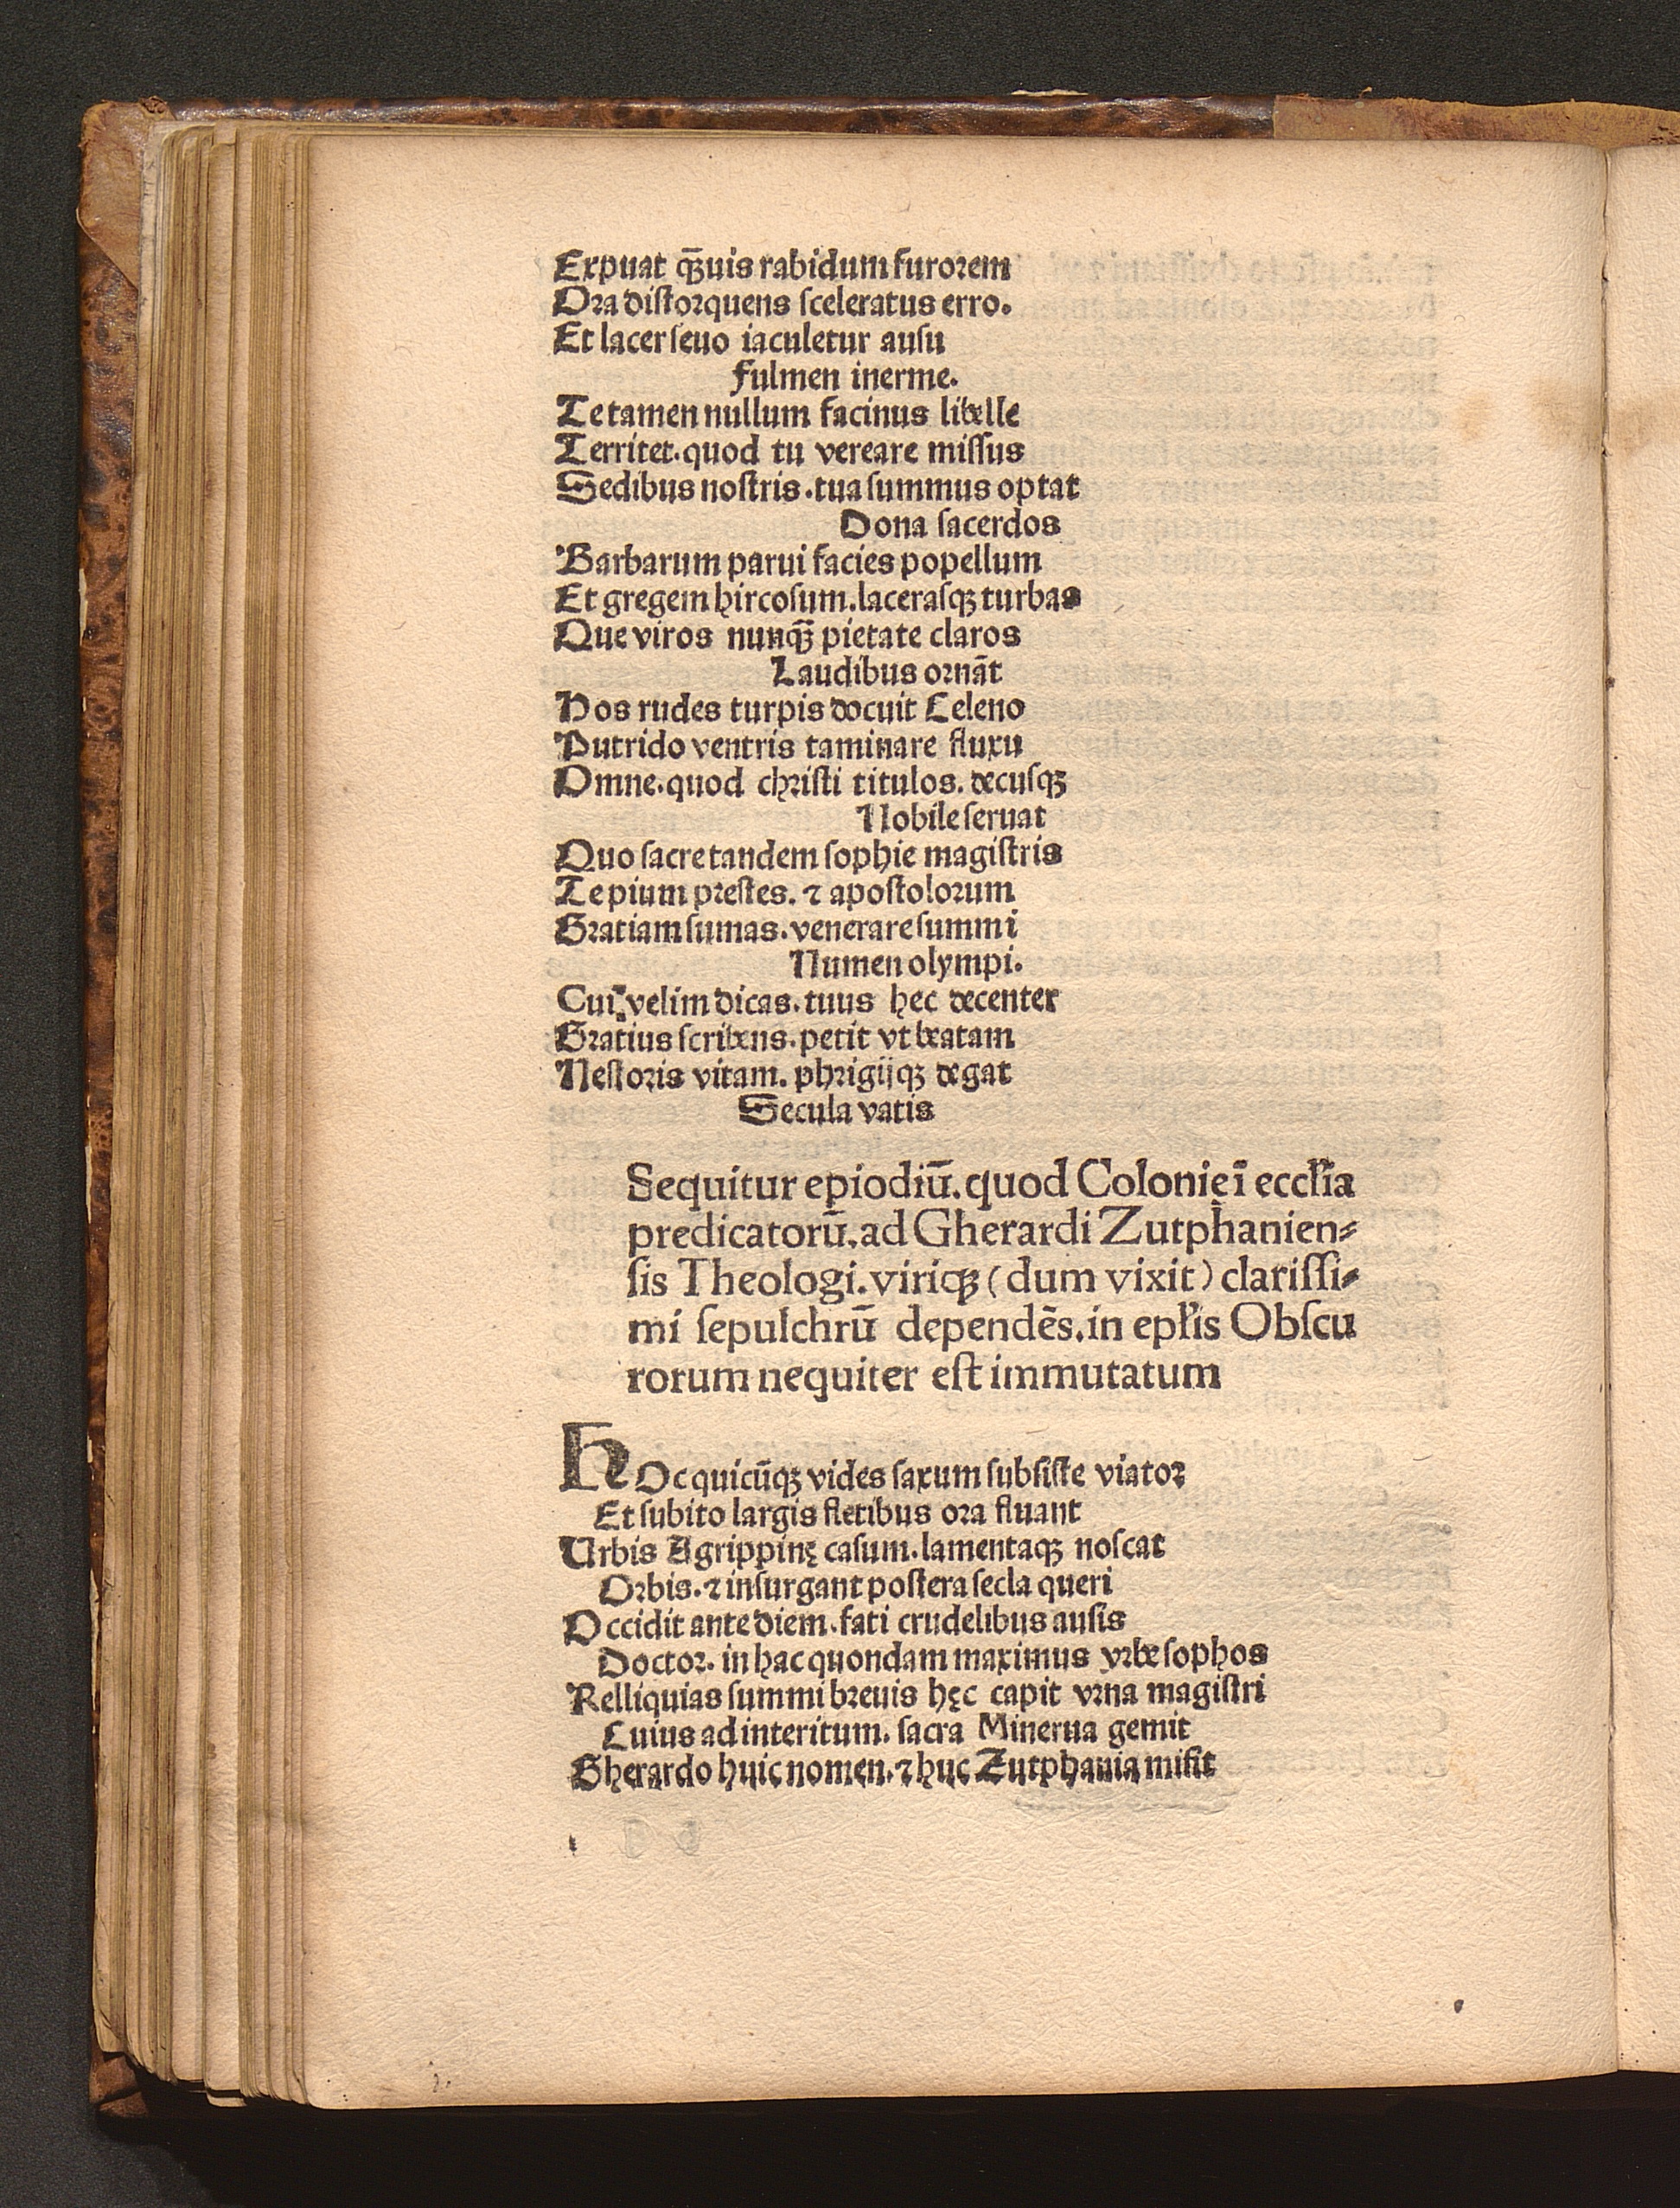 Expuat q̄ꝫuis rabidum furorem
Ora diſtorquens ſceleratus erro.
Et lacer ſeuo iaculetur auſu
Fulmen inerme.
Te tamen nullum facinus libelle
Territet. quod tu vereare miſſus
Sedibus noſtris. tua ſummus optat
Dona ſacerdos
Barbarum parui facies popellum
Et gregem hircoſum. laceraſqꝫ turbas
Que viros nunq̄ꝫ pietate claros
Laudibus ornāt
Hos rudes turpis docuit Celeno
Putrido ventris taminare fluxu
Omne. quod chriſti titulos. decuſqꝫ
Nobile ſeruat
Quo ſacre tandem ſophie magiſtris
Te pium preſtes. ⁊ apoſtolorum
Gratiam ſumas. venerare ſummi
Numen olympi.
Cui velim dicas. tuus hec decenter
Gratius ſcribens. petit vt beatam
Neſtoris vitam. phrigijqꝫ degat
Secula vatis
Sequitur epiodiū. quod Colonię ī eccłſia
predicatorū. ad Gherardi Zutphanien⸗
ſis Theologi. viriqꝫ (dum vixit) clariſſi⸗
mi ſepulchrū dependēs. in epłis Obſcu
rorum nequiter eſt immutatum
HOc quicūqꝫ vides ſaxum ſubſiſte viator
Et ſubito largis fletibus ora fluant
Urbis Agrippinę caſum. lamentaqꝫ noſcat
Orbis. ⁊ inſurgant poſtera ſecla queri
Occidit ante diem. fati crudelibus auſis
Doctor. in hac quondam maximus vrbe ſophos
Relliquias ſummi breuis hęc capit vrna magiſtri
Cuius ad interitum. ſacra Minerua gemit
Gherardo huic nomen. ⁊ huc Zutphania miſit